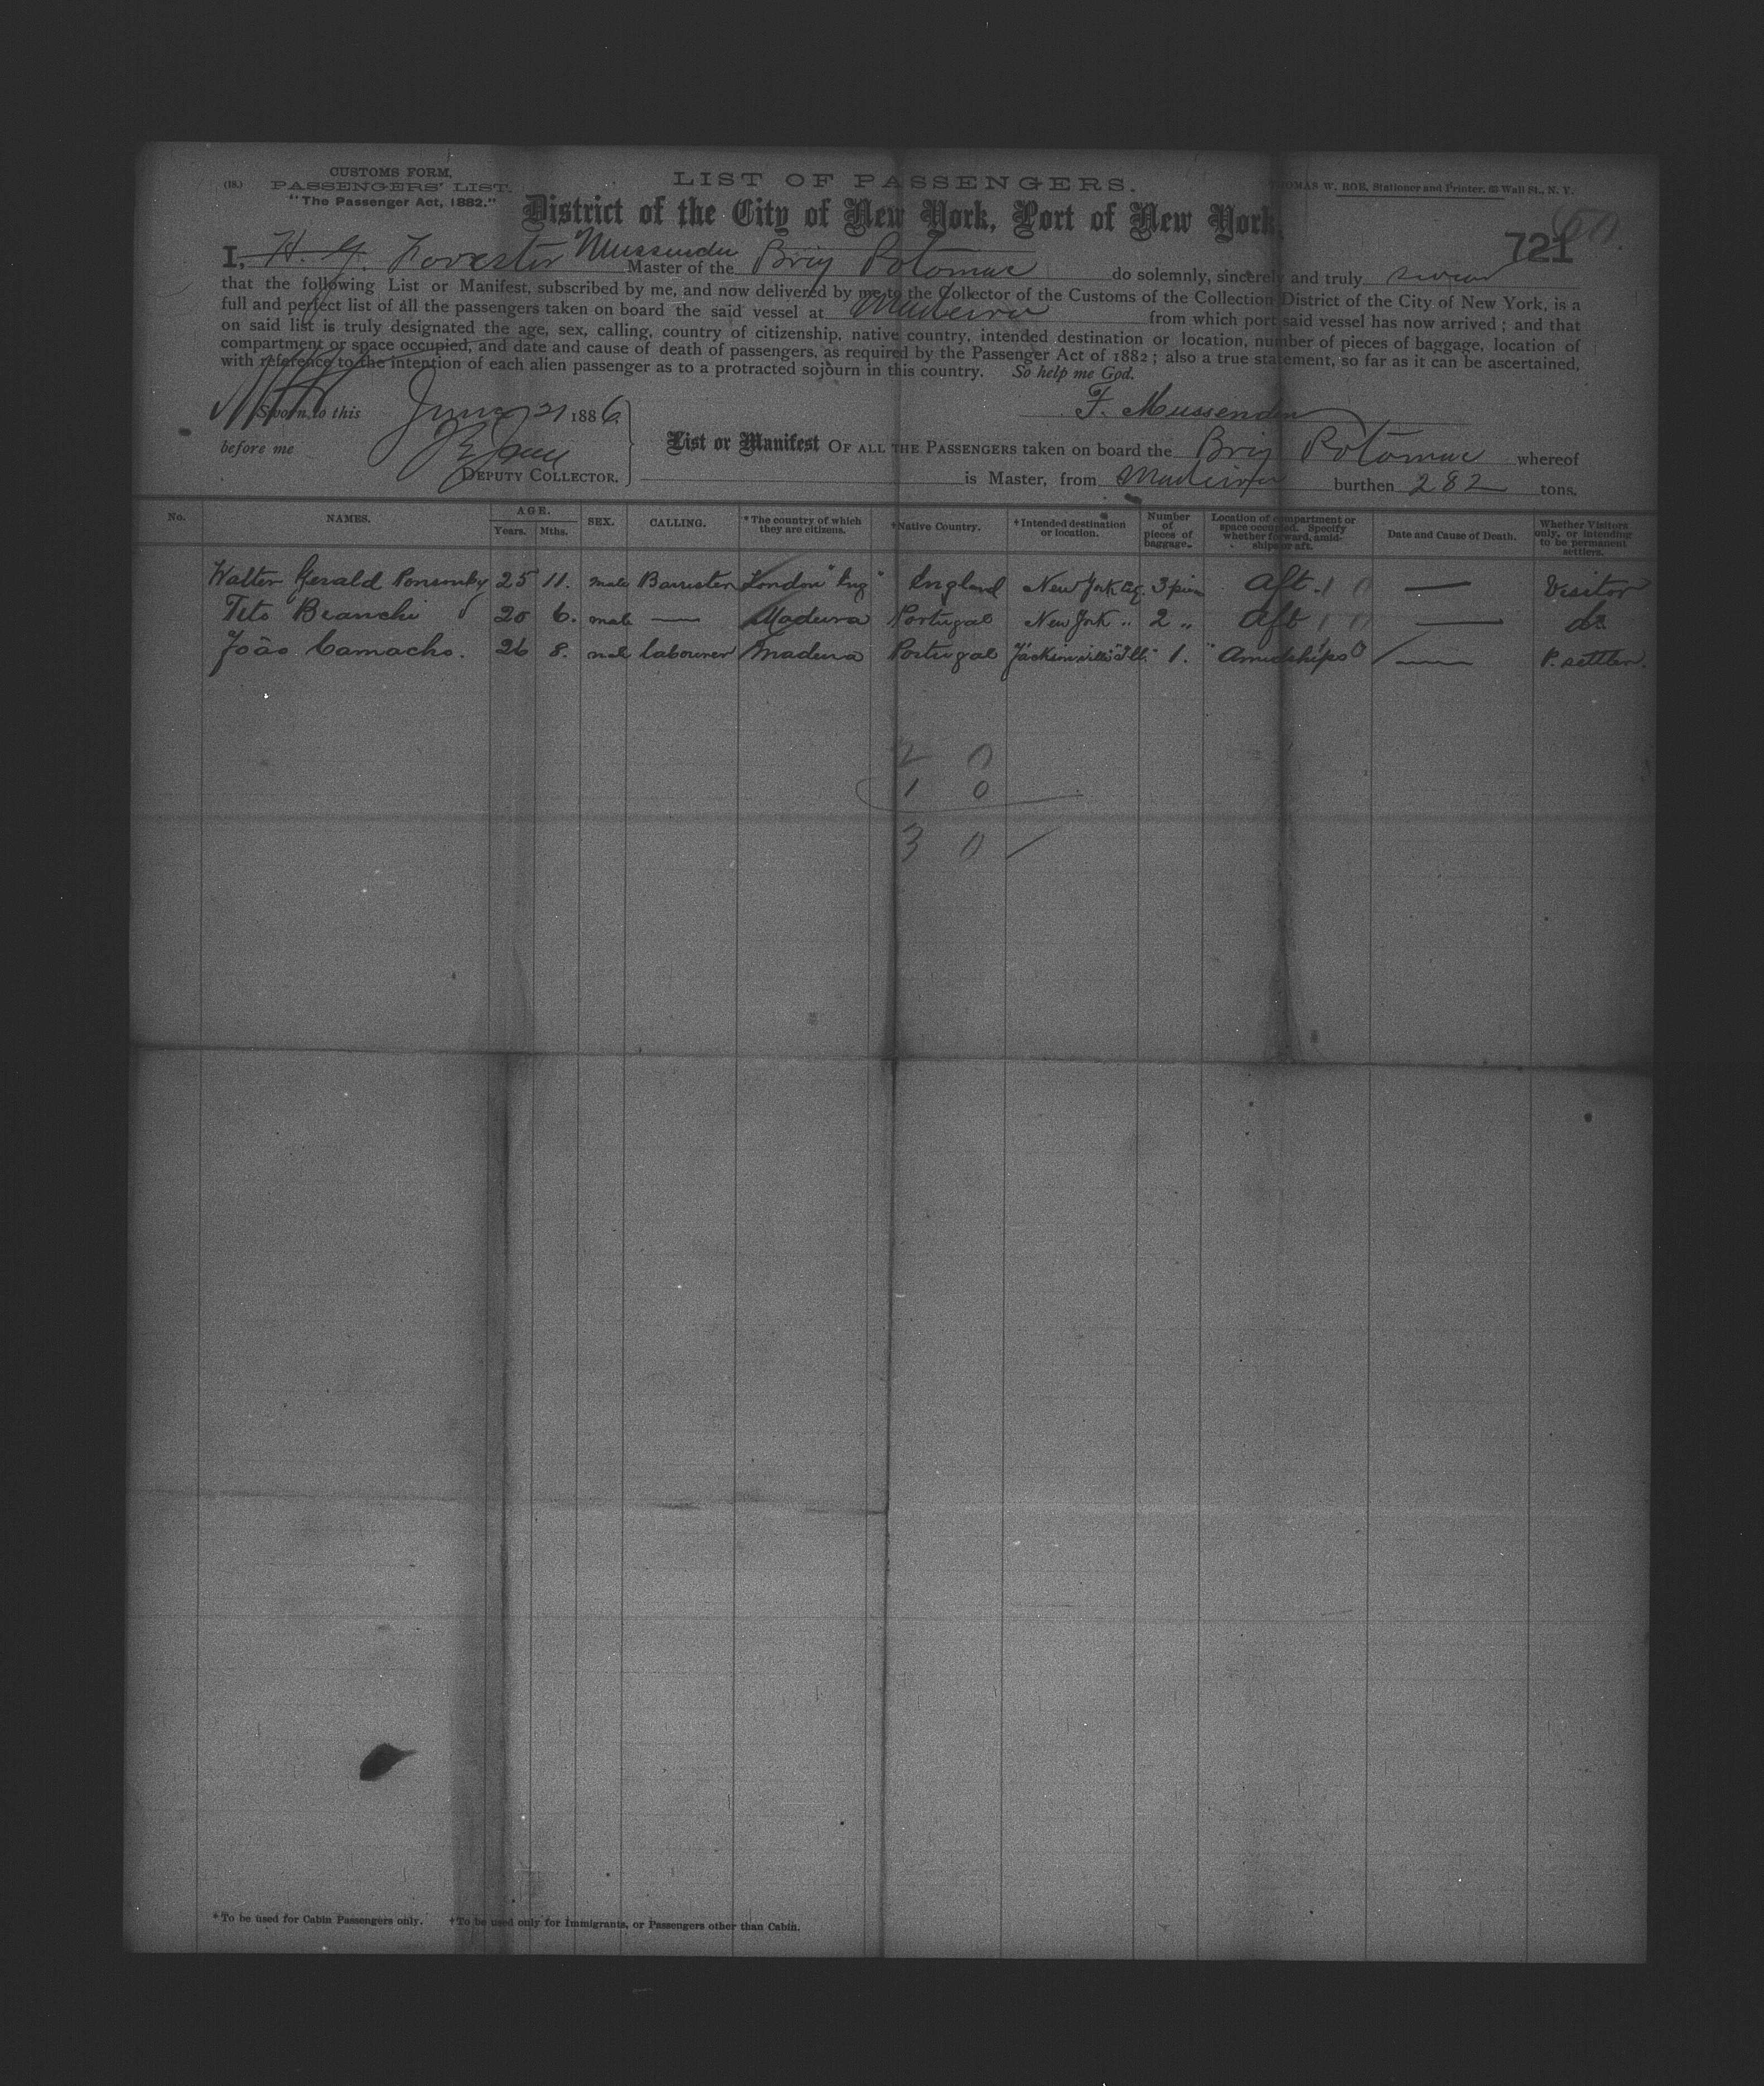 (18.)
CUSTOMS FORM.
PASSENGERS' LIST.
"The Passenger Act, 1882."
LIST OF PASSENGERS.
THOMAS W. ROE, Stationer and Printer, Wall St., N. Y.
District of the City of New York, Port of New York.
721
I, H. Forester Mussenden Master of the Brig Potomac do solemnly, sincerely and truly swear
that the following List or Manifest, subscribed by me, and now delivered by me to the Collector of the Customs of the Collection District of the City of New York, is a
full and perfect list of all the passengers taken on board the said vessel at Madeira from which port said vessel has now arrived ; and that
on said list is truly designated the age, sex, calling, country of citizenship, native country, intended destination or location, number of pieces of baggage, location of
compartment or space occupied, and date and cause of death of passengers, as required by the Passenger Act of 1882 ; also a true statement, so far as it can be ascertained,
with reference to the intention of each alien passenger as to a protracted sojourn in this country. So help me God.
Sworn to this 21 1886
F. Mussenden
before me
DEPUTY COLLECTOR.
List or Manifest OF ALL THE PASSENGERS taken on board the Brig Potomac whereof
is Master, from Madeira burthen 282 tons.
No. NAMES. AGE. Years. Mths. SEX. CALLING. *The country of which they are citizens. †Native Country. †Intended destination or location. Number of pieces of baggage. Location of compartment or space occupied. Specify whether forward, amidships or aft. Date and Cause of Death. Whether Visitors only, or intending to be permanent settlers.
Walter Gerald Ponsonby 25 11. male Barrister London "Eng" England New York 3 Aft 1 0 — Visitor
Tito Bianchi 20 6. male — Madeira Portugal New York " 2 " Aft 1 0 — do
João Camacho. 26 8. male labourer Madeira Portugal Jacksonville "Ill." 1. " Amidships — P. settler.
2 0
1 0
3 0
*To be used for Cabin Passengers only. †To be used only for Immigrants, or Passengers other than Cabin.